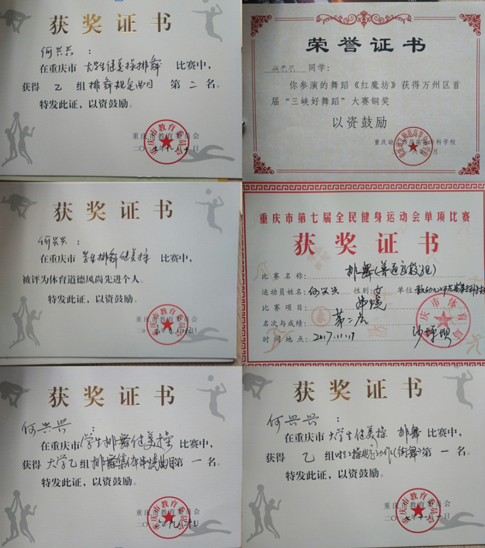 获奖证书
何兴兴：
在重庆市 大学生健美操排舞 比赛中，
获得 乙 组 排舞规定曲目 第 二 名。
特发此证，以资鼓励。
重庆市教育委员会
荣誉证书
同学：
你参演的舞蹈《红魔坊》获得万州区首
届“三峡好舞蹈”大赛铜奖
以资鼓励
获奖证书
何兴兴：
在重庆市 学生排舞健美操 比赛中，
被评为体育道德风尚先进个人。
特发此证，以资鼓励。
重庆市教育委员会
重庆市第七届全民健身运动会单项比赛
获奖证书
比赛名称：排舞
运动员姓名：何兴兴 性别：女 单位：
比赛项目：串烧
名次与成绩：第二名
时间地点：2017.11.19
重庆市体育局
获奖证书
何兴兴：
在重庆市 学生排舞健美操 比赛中，
获得 大学乙 组 排舞集体串烧曲目 第 一 名。
特发此证，以资鼓励。
重庆市教育委员会
获奖证书
何兴兴：
在重庆市 大学生健美操 排舞 比赛中，
获得 乙 组 第 一 名。
特发此证，以资鼓励。
重庆市教育委员会